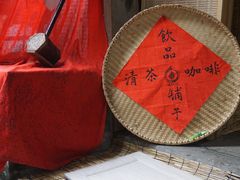 飲品
清茶 咖啡
舖子